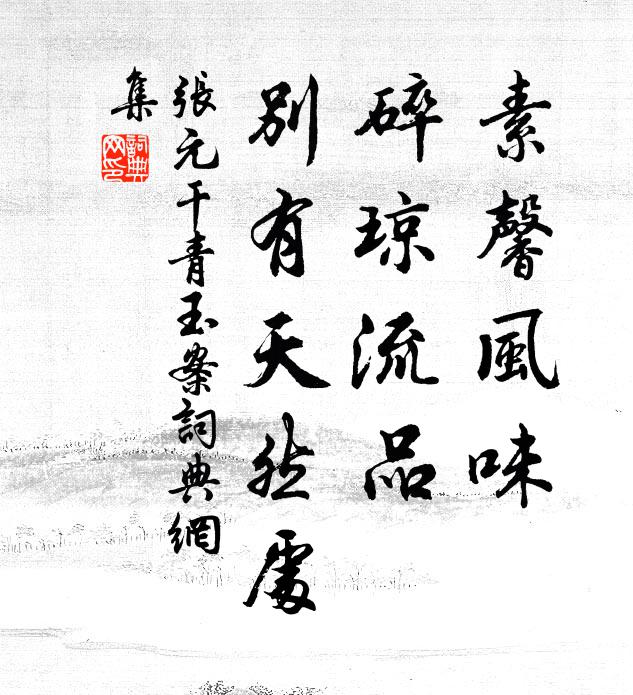 素馨風味
碎琼流品
別有天然處
張元干青玉案詞典網
集
詞典
网印